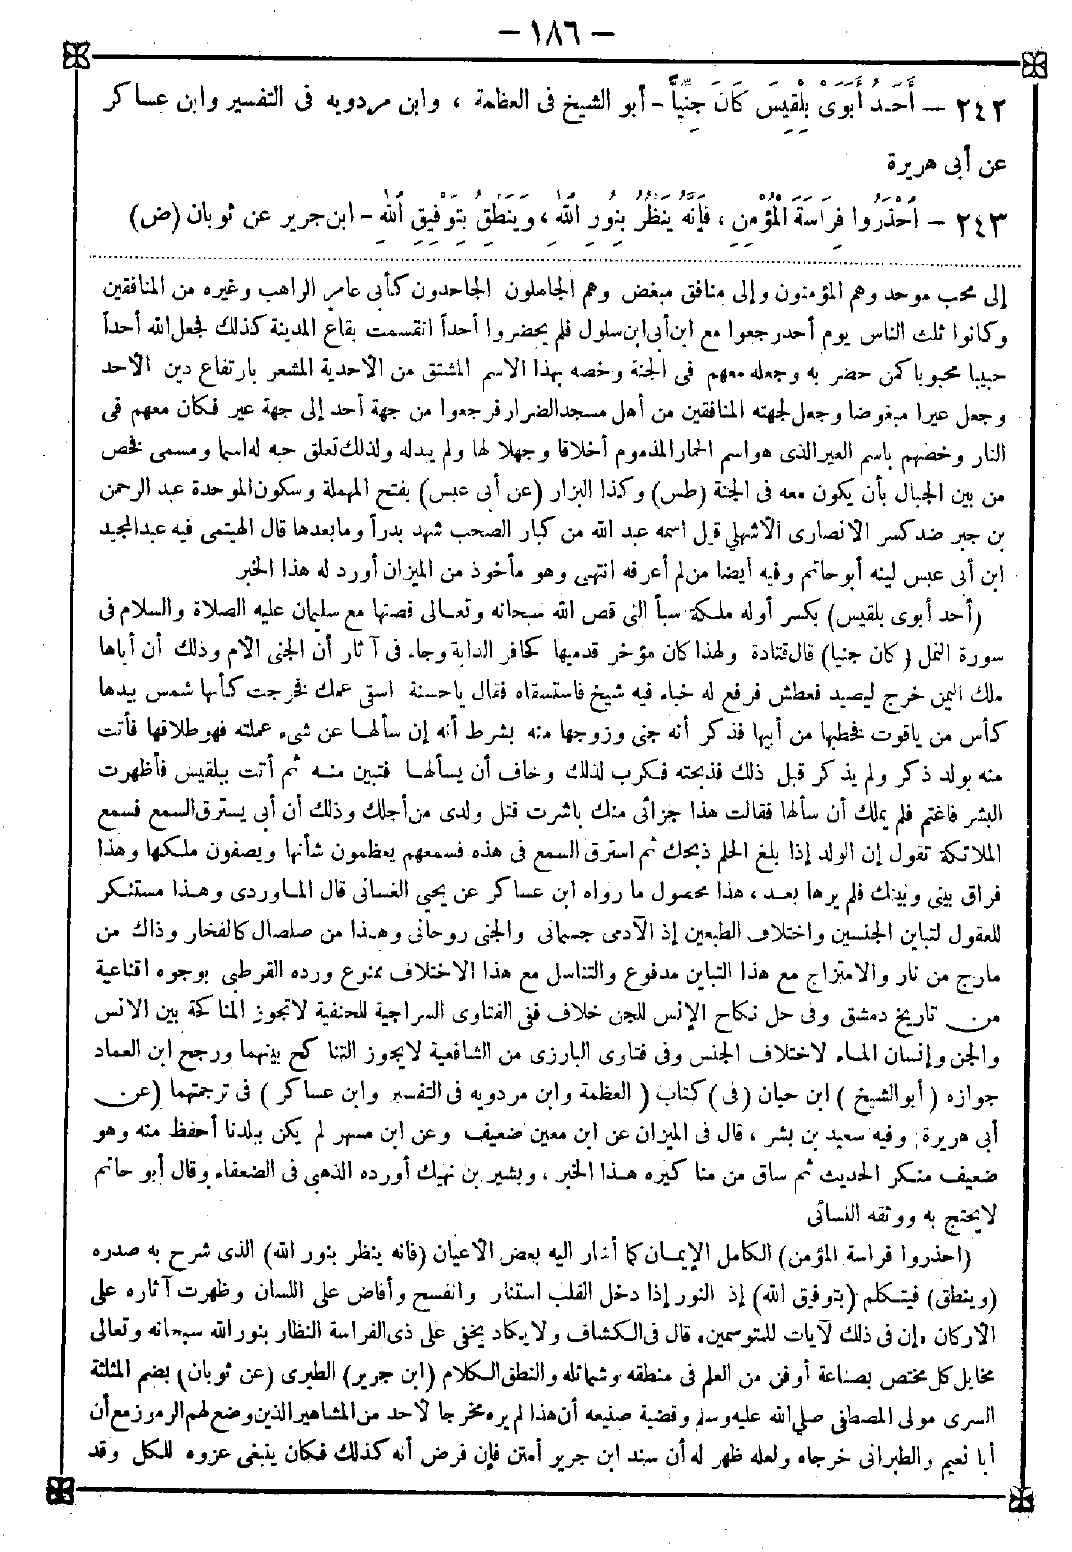 - ١٨٦ -
٢٤٢ - أَحَدُ أَبَوَىْ بِلْقِيسَ كَانَ جِنِّيًّا - أبو الشيخ فى العظمة ، وابن مردويه فى التفسير وابن عساكر
عن أبى هريرة
٢٤٣ - اُحْذَرُوا فِرَاسَةَ الْمُؤْمِنِ ، فَإِنَّهُ يَنْظُرُ بِنُورِ اللّٰهِ ، وَيَنْطِقُ بِتَوْفِيقِ اللّٰهِ - ابن جرير عن ثوبان (ض)
إلى محب موحد وهم المؤمنون وإلى منافق مبغض وهم الجاهلون الجاحدون كأبى عامر الراهب وغيره من المنافقين
وكانوا ثلث الناس يوم أحد رجعوا مع ابن أبى ابن سلول فلم يحضروا أحداً انقسمت بقاع المدينة كذلك فجعل الله أحداً
حبيبا محبوبا كمن حضر به وجعله معهم فى الجنة وخصه بهذا الاسم المشتق من الأحدية المشعر بارتفاع دين الأحد
وجعل عيرا مبغوضا وجعل لجهته المنافقين من أهل مسجد الضرار فرجعوا من جهة أحد إلى جهة عير فكان معهم فى
النار وخصهم باسم العير الذى هو اسم الحمار المذموم أخلاقا وجهلا لها ولم يبدله ولذلك تعلق حبه له اسما ومسمى فخص
من بين الجبال بأن يكون معه فى الجنة (طس) وكذا البزار (عن أبى عبس) بفتح المهملة وسكون الموحدة عبد الرحمن
بن جبر ضد كسر الأنصارى الأشهلي قيل اسمه عبد الله من كبار الصحب شهد بدراً وما بعدها قال الهيتمى فيه عبد المجيد
ابن أبى عبس لينه أبو حاتم وفيه أيضا من لم أعرفه انتهى وهو مأخوذ من الميزان أورد له هذا الخبر
(أحد أبوى بلقيس) بكسر أوله ملكة سبأ التى قص الله سبحانه وتعالى قصتها مع سليمان عليه الصلاة والسلام فى
سورة النمل (كان جنيا) قال قتادة ولهذا كان مؤخر قدميها كحافر الدابة وجاء فى آثار أن الجنى الأم وذلك أن أباها
ملك اليمن خرج ليصيد فعطش فرفع له خباء فيه شيخ فاستسقاه فقال ياحسنة اسقى عمك فخرجت كأنها شمس بيدها
كأس من ياقوت فخطبها من أبيها فذكر أنه جنى وزوجها منه بشرط أنه إن سألها عن شىء عملته فهو طلاقها فأتت
منه بولد ذكر ولم يذكر قبل ذلك فذبحته فكرب لذلك وخاف أن يسألها فتبين منه ثم أتت ببلقيس فأظهرت
البشر فاغتم فلم يملك أن سألها فقالت هذا جزائى منك باشرت قتل ولدى من أجلك وذلك أن أبى يسترق السمع فسمع
الملائكة تقول إن الولد إذا بلغ الحلم ذبحك ثم استرق السمع فى هذه فسمعهم يعظمون شأنها ويصفون ملكها وهذا
فراق بينى وبينك فلم يرها بعد ، هذا محصول ما رواه ابن عساكر عن يحيى الغسانى قال الماوردى وهذا مستنكر
للعقول لتباين الجنسين واختلاف الطبعين إذ الآدمى جسمانى والجنى روحانى وهذا من صلصال كالفخار وذاك من
مارج من نار والامتزاج مع هذا التباين مدفوع والتناسل مع هذا الاختلاف ممنوع ورده القرطبى بوجوه اقناعية
من تاريخ دمشق وفى حل نكاح الإنس للجن خلاف ففى الفتاوى السراجية للحنفية لا تجوز المناكحة بين الانس
والجن وإنسان الماء لاختلاف الجنس وفى فتاوى البارزى من الشافعية لايجوز التناكح بينهما ورجح ابن العماد
جوازه ( أبو الشيخ ) ابن حيان (فى) كتاب ( العظمة وابن مردويه فى التفسير وابن عساكر ) فى ترجمتهما (عن
أبى هريرة) وفيه سعيد بن بشر ، قال فى الميزان عن ابن معين ضعيف وعن ابن مسهر لم يكن ببلدنا أحفظ منه وهو
ضعيف منكر الحديث ثم ساق من مناكيره هذا الخبر ، وبشير بن نهيك أورده الذهبى فى الضعفاء وقال أبو حاتم
لايحتج به ووثقه النسائى
(احذروا فراسة المؤمن) الكامل الإيمان كما أشار اليه بعض الأعيان (فانه ينظر بنور الله) الذى شرح به صدره
(وينطق) فيتكلم (بتوفيق الله) إذ النور إذا دخل القلب استنار وانفسح وأفاض على اللسان وظهرت آثاره على
الأركان «إن فى ذلك لآيات للمتوسمين» قال فى الكشاف ولا يكاد يخفى على ذى الفراسة النظار بنور الله سبحانه وتعالى
مخايل كل مختص بصناعة أو فن من العلم فى منطقه وشمائله والنطق الكلام (ابن جرير) الطبرى (عن ثوبان) بضم المثلثة
السرى مولى المصطفى صلى الله عليه وسلم وقضية صنيعه أن هذا لم يره مخرجا لأحد من المشاهير الذين وضع لهم الرموز مع أن
أبا نعيم والطبرانى خرجاه ولعله ظهر له أن سند ابن جرير أمتن فإن فرض أنه كذلك فكان ينبغى عزوه للكل وقد